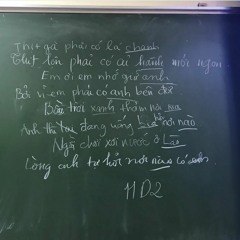 Thịt gà phải có lá chanh
Thịt lợn phải có cái hành mới ngon
Em ơi em nhớ giữ anh
Bởi vì em phải có anh bên đời
Bầu trời xanh thăm nơi
Anh thì đang uống nơi nào
Ngồi chơi xơi nước ở Lào
Lòng anh tự hỏi nơi nào có em
11D2